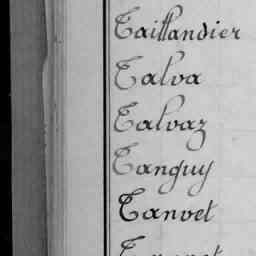 Taillandier
Talva
Talvaz
Tanguy
Tanvet